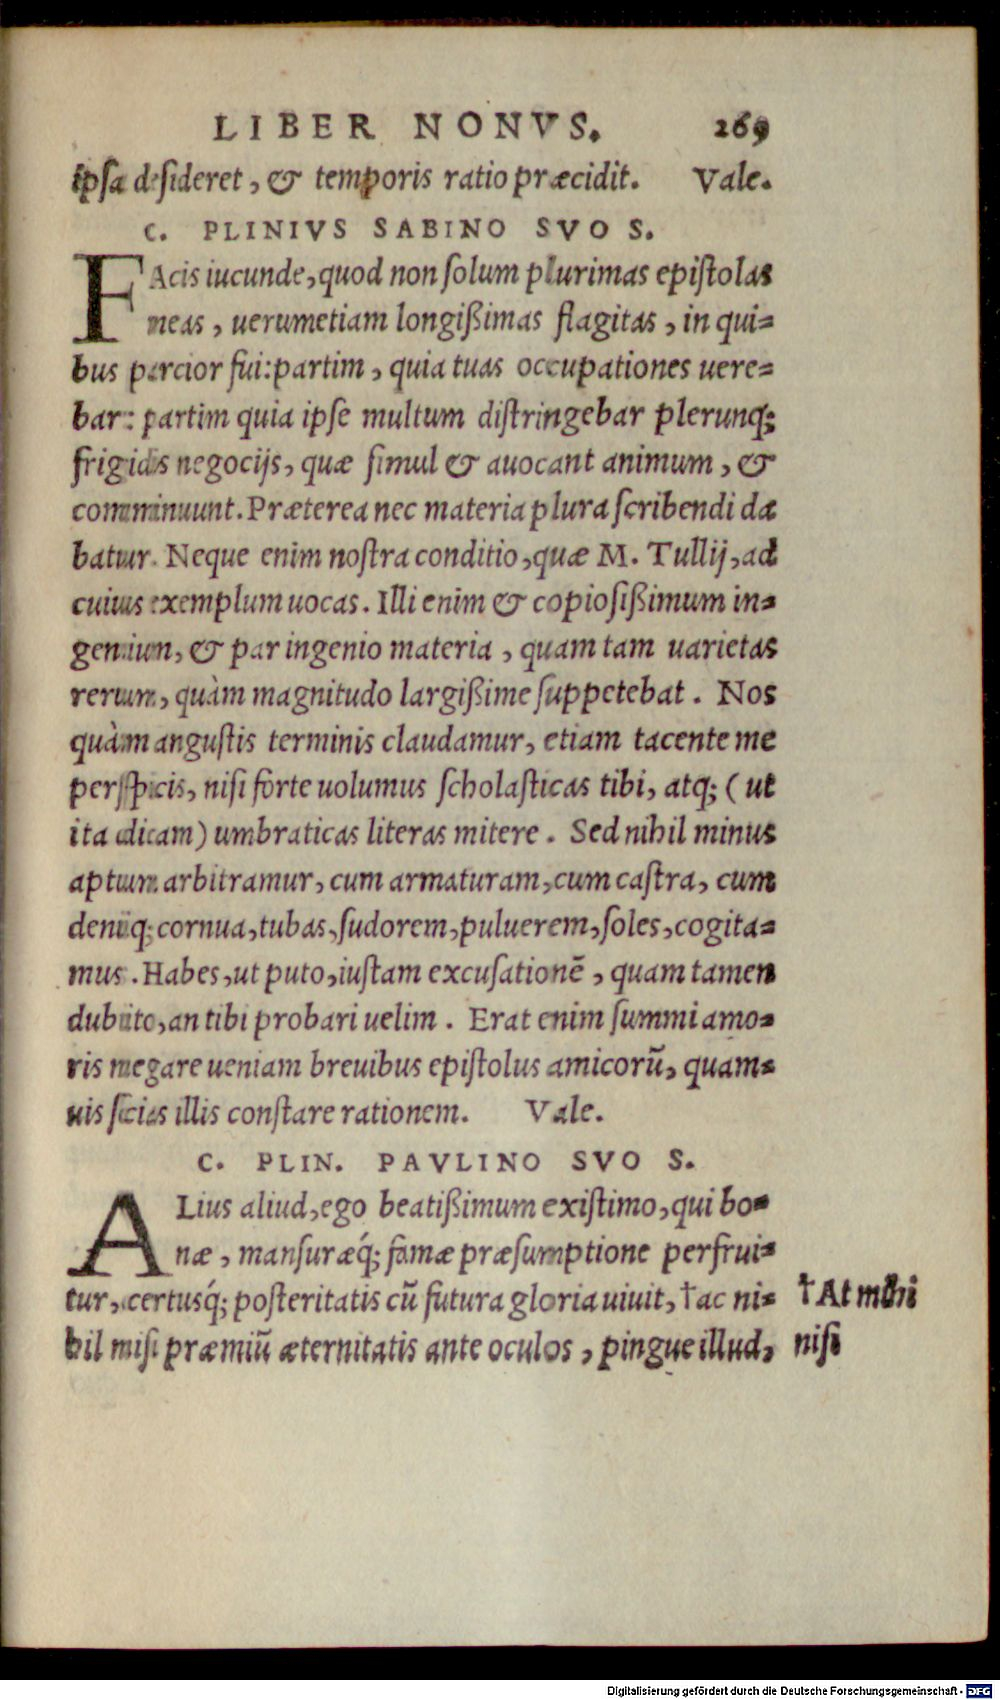 LIBER NONVS. 269
ipsa desideret, & temporis ratio præcidit. Vale.
C. PLINIVS SABINO SVO S.
FAcis iucunde, quod non solum plurimas epistolas
meas, uerumetiam longißimas flagitas, in qui=
bus parcior fui: partim, quia tuas occupationes uere=
bar: partim quia ipse multum distringebar plerunq;
frigidis negocijs, quæ simul & auocant animum, &
comminuunt. Præterea nec materia plura scribendi da
batur. Neque enim nostra conditio, quæ M. Tullij, ad
cuius exemplum uocas. Illi enim & copiosißimum in=
genium, & par ingenio materia, quam tam uarietas
rerum, quàm magnitudo largißime suppetebat. Nos
quàm angustis terminis claudamur, etiam tacente me
perspicis, nisi forte uolumus scholasticas tibi, atq; ( ut
ita dicam) umbraticas literas mitere. Sed nihil minus
aptum arbitramur, cum armaturam, cum castra, cum
deniq; cornua, tubas, sudorem, puluerem, soles, cogita=
mus. Habes, ut puto, iustam excusationē, quam tamen
dubito, an tibi probari uelim. Erat enim summi amo=
ris negare ueniam breuibus epistolus amicorū, quam=
uis scias illis constare rationem. Vale.
C. PLIN. PAVLINO SVO S.
ALius aliud, ego beatißimum existimo, qui bo=
næ, mansuræq́; famæ præsumptione perfrui=
tur, certusq́; posteritatis cū futura gloria uiuit, †ac ni= †At mihi
hil nisi præmiū æternitatis ante oculos, pingue illud, nisi
Digitalisierung gefördert durch die Deutsche Forschungsgemeinschaft - DFG